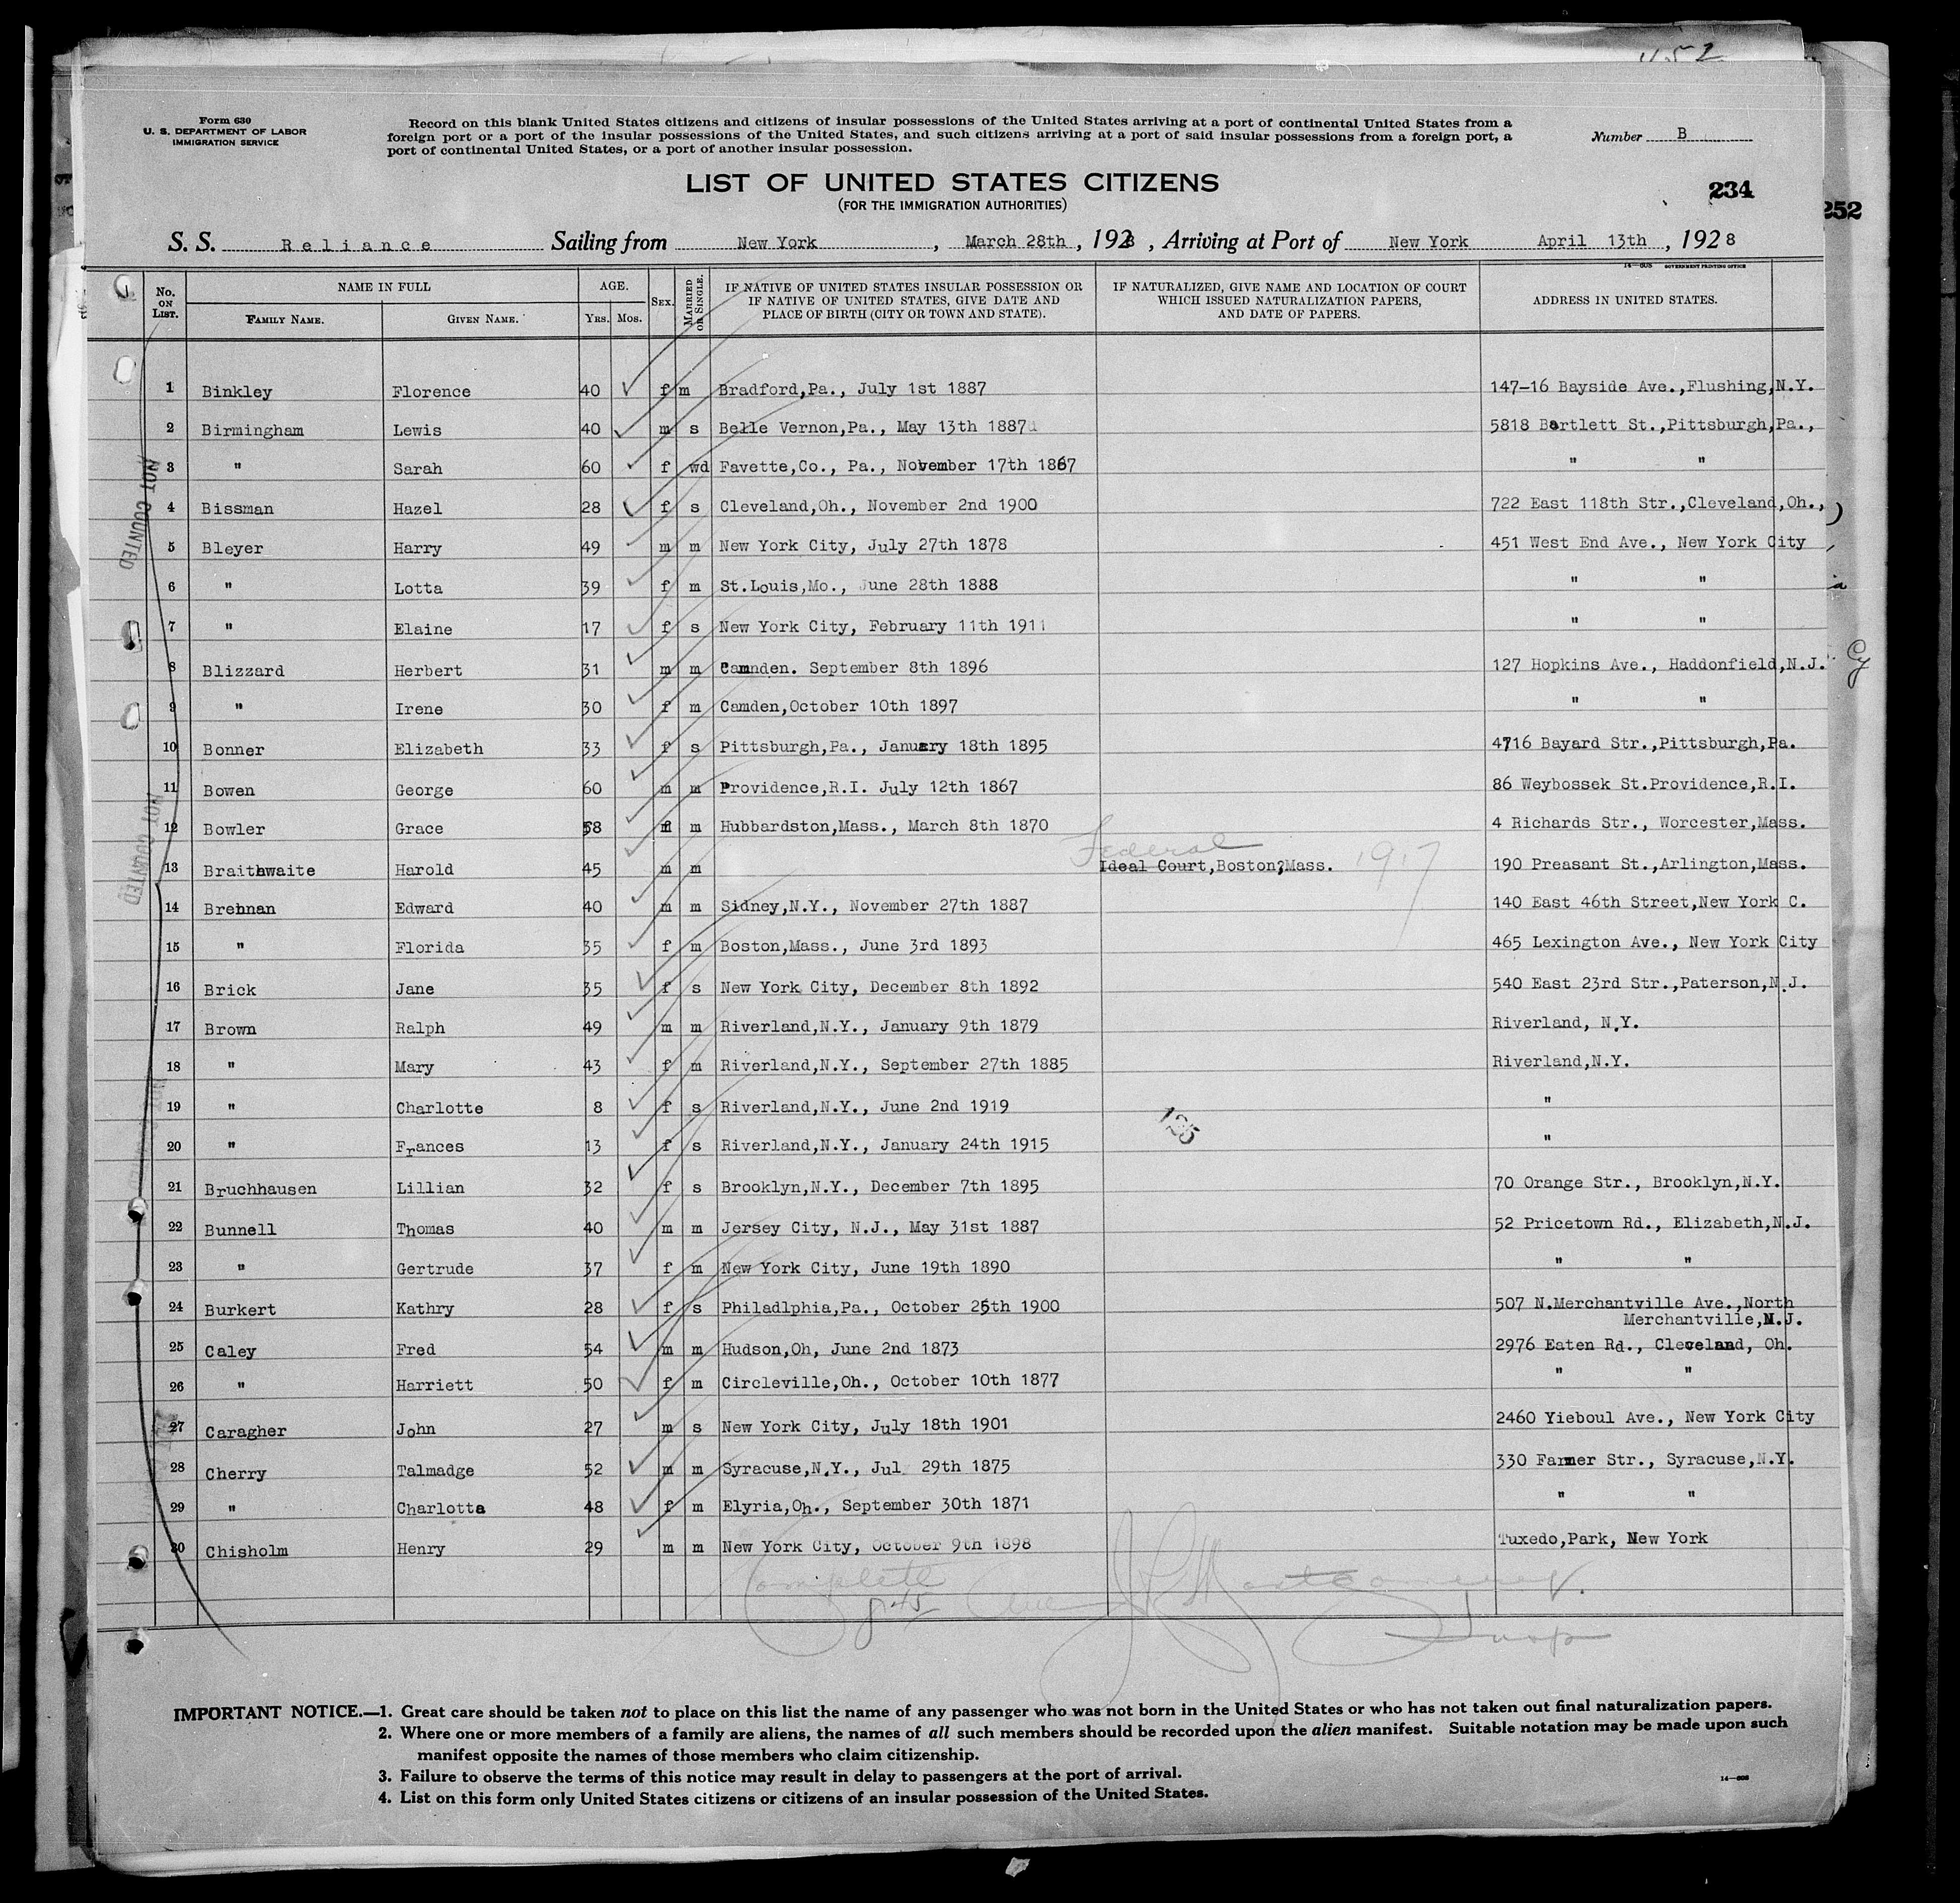 452
Form 630
U. S. DEPARTMENT OF LABOR
IMMIGRATION SERVICE
Record on this blank United States citizens and citizens of insular possessions of the United States arriving at a port of continental United States from a
foreign port or a port of the insular possessions of the United States, and such citizens arriving at a port of said insular possessions from a foreign port, a
port of continental United States, or a port of another insular possession.
Number B
LIST OF UNITED STATES CITIZENS
(FOR THE IMMIGRATION AUTHORITIES)
234
252
S. S. Reliance Sailing from New York, March 28th, 1928, Arriving at Port of New York April 13th, 1928
GOVERNMENT PRINTING OFFICE
No. ON LIST. NAME IN FULL FAMILY NAME. GIVEN NAME. AGE. YRS. MOS. SEX. MARRIED OR SINGLE. IF NATIVE OF UNITED STATES INSULAR POSSESSION OR IF NATIVE OF UNITED STATES, GIVE DATE AND PLACE OF BIRTH (CITY OR TOWN AND STATE). IF NATURALIZED, GIVE NAME AND LOCATION OF COURT WHICH ISSUED NATURALIZATION PAPERS, AND DATE OF PAPERS. ADDRESS IN UNITED STATES.
1 Binkley Florence 40 f m Bradford,Pa., July 1st 1887 147-16 Bayside Ave.,Flushing,N.Y.
2 Birmingham Lewis 40 m s Belle Vernon,Pa., May 13th 1887 5818 Bartlett St.,Pittsburgh,Pa.,
3 " Sarah 60 f wd Favette,Co., Pa., November 17th 1867 " "
4 Bissman Hazel 28 f s Cleveland,Oh., November 2nd 1900 722 East 118th Str.,Cleveland,Oh.,
5 Bleyer Harry 49 m m New York City, July 27th 1878 451 West End Ave., New York City
6 " Lotta 39 f m St.Louis,Mo., June 28th 1888 " "
7 " Elaine 17 f s New York City, February 11th 1911 " "
8 Blizzard Herbert 31 m m Camnden. September 8th 1896 127 Hopkins Ave., Haddonfield,N.J.
9 " Irene 30 f m Camden,October 10th 1897 " "
10 Bonner Elizabeth 33 f s Pittsburgh,Pa., January 18th 1895 4716 Bayard Str.,Pittsburgh,Pa.
11 Bowen George 60 m m Providence,R.I. July 12th 1867 86 Weybossek St.Providence,R.I.
12 Bowler Grace 58 f m Hubbardston,Mass., March 8th 1870 4 Richards Str., Worcester,Mass.
Federal
13 Braithwaite Harold 45 m m Ideal Court,Boston,Mass. 1917 190 Preasant St.,Arlington,Mass.
14 Brehnan Edward 40 m m Sidney,N.Y., November 27th 1887 140 East 46th Street,New York C.
15 " Florida 35 f m Boston,Mass., June 3rd 1893 465 Lexington Ave., New York City
16 Brick Jane 35 f s New York City, December 8th 1892 540 East 23rd Str.,Paterson,N.J.
17 Brown Ralph 49 m m Riverland,N.Y., January 9th 1879 Riverland, N.Y.
18 " Mary 43 f m Riverland,N.Y., September 27th 1885 Riverland,N.Y.
19 " Charlotte 8 f s Riverland,N.Y., June 2nd 1919 "
20 " Frances 13 f s Riverland,N.Y., January 24th 1915 "
21 Bruchhausen Lillian 32 f s Brooklyn,N.Y., December 7th 1895 70 Orange Str., Brooklyn,N.Y.
22 Bunnell Thomas 40 m m Jersey City, N.J., May 31st 1887 52 Pricetown Rd., Elizabeth,N.J.
23 " Gertrude 37 f m New York City, June 19th 1890 " "
24 Burkert Kathry 28 f s Philadlphia,Pa., October 25th 1900 507 N.Merchantville Ave.,North
Merchantville,N.J.
25 Caley Fred 54 m m Hudson,Oh, June 2nd 1873 2976 Eaten Rd., Cleveland, Oh.
26 " Harriett 50 f m Circleville,Oh., October 10th 1877 " "
27 Caragher John 27 m s New York City, July 18th 1901 2460 Yieboul Ave., New York City
28 Cherry Talmadge 52 m m Syracuse,N.Y., Jul 29th 1875 330 Farmer Str., Syracuse,N.Y.
29 " Charlotta 48 f m Elyria,Oh., September 30th 1871 " "
30 Chisholm Henry 29 m m New York City, October 9th 1898 Tuxedo,Park, New York
NOT COUNTED
NOT COUNTED
Complete
J P Montgomery
Insp
IMPORTANT NOTICE.—1. Great care should be taken not to place on this list the name of any passenger who was not born in the United States or who has not taken out final naturalization papers.
2. Where one or more members of a family are aliens, the names of all such members should be recorded upon the alien manifest. Suitable notation may be made upon such
manifest opposite the names of those members who claim citizenship.
3. Failure to observe the terms of this notice may result in delay to passengers at the port of arrival.
4. List on this form only United States citizens or citizens of an insular possession of the United States.